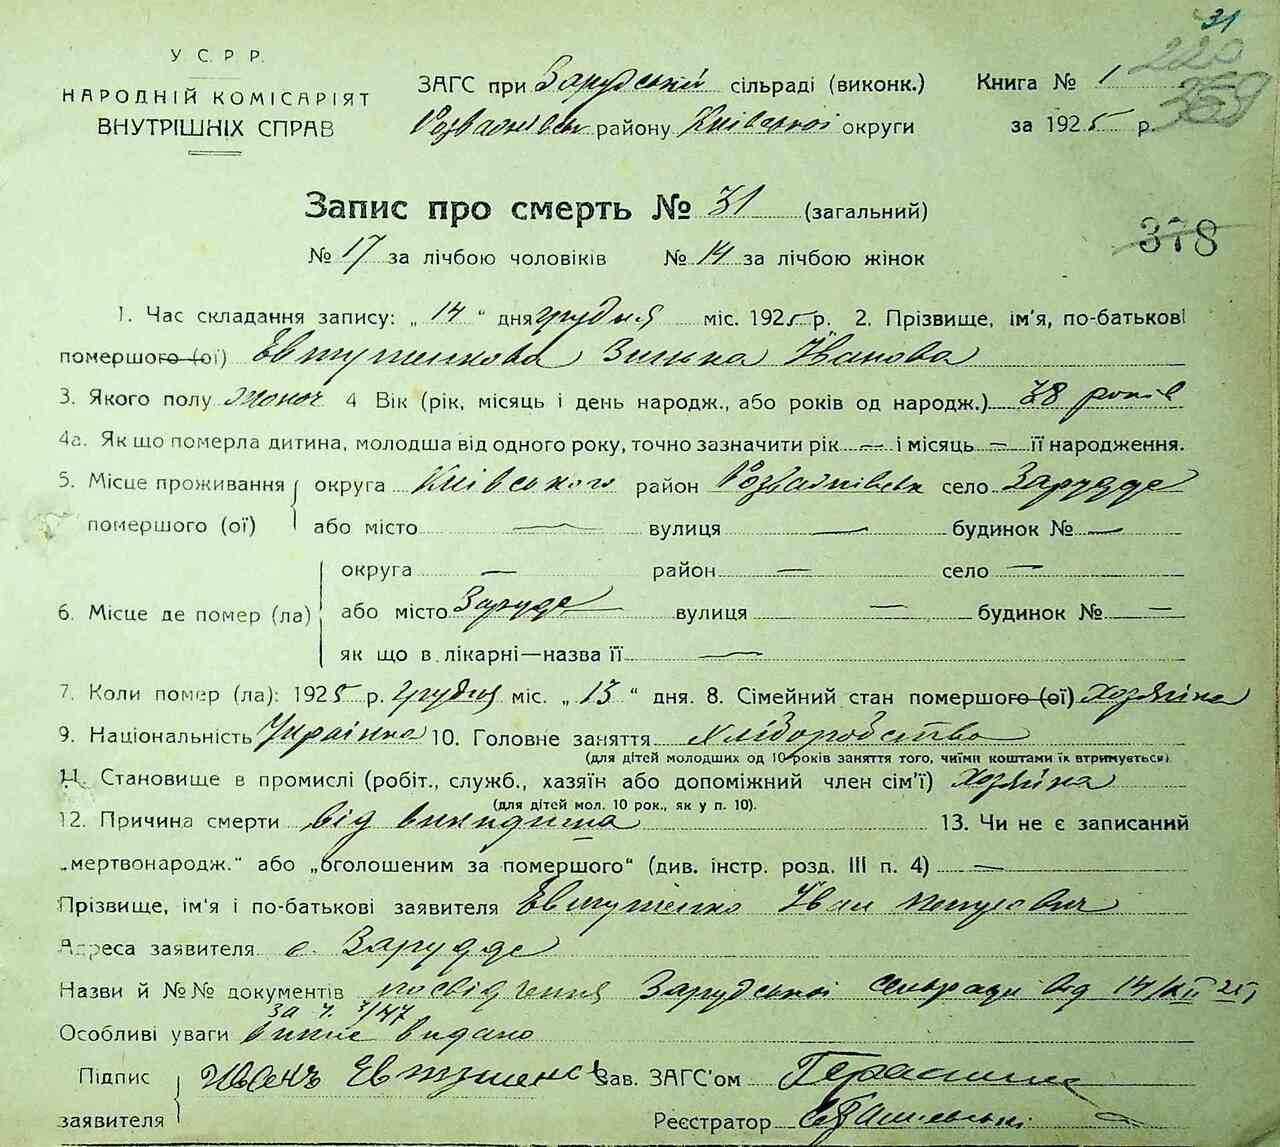 31
220
359
У. С. Р. Р.
НАРОДНІЙ КОМІСАРІЯТ
ВНУТРІШНІХ СПРАВ
ЗАГС при Зарудській сільраді (виконк.)
Розважівськ району Київської округи
Книга № 1
за 1925 р.
Запис про смерть № 31 (загальний)
378
№ 17 за лічбою чоловіків № 14 за лічбою жінок
1. Час складання запису: „ 14 “ дня грудня міс. 1925 р. 2. Прізвище, ім'я, по-батькові
помершого (ої) Евтушенкова Зинька Іванова
3. Якого полу жіноч 4 Вік (рік, місяць і день народж., або років од народж.) 38 років
4а. Як що померла дитина, молодша від одного року, точно зазначити рік — і місяць — її народження.
5. Місце проживання округа Київського район Розважівськ село Зарудде
помершого (ої) або місто — вулиця — будинок № —
округа — район — село —
6. Місце де помер (ла) або місто Зарудде вулиця — будинок № —
як що в лікарні—назва її —
7. Коли помер (ла): 1925 р. грудня міс. „ 13 “ дня. 8. Сімейний стан помершого (ої) хозяїна
9. Національність Українка 10. Головне заняття хліборобство
(для дітей молодших од 10 років заняття того, чиїми коштами їх втримується)
11. Становище в промислі (робіт., служб., хазяїн або допоміжний член сім'ї) хозяїна
(для дітей мол. 10 рок., як у п. 10).
12. Причина смерти від викидиша 13. Чи не є записаний
„мертвонародж.“ або „оголошеним за помершого“ (див. інстр. розд. III п. 4) —
Прізвище, ім'я і по-батькові заявителя Евтушенко Іван
Адреса заявителя с. Зарудде
Назви й №№ документів посвідчення Зарудської сельради від 14/XII 25
за ч. 3/47
Особливі уваги видано
Підпис заявителя Иванъ Евтушенко Зав. ЗАГС'ом
Реєстратор